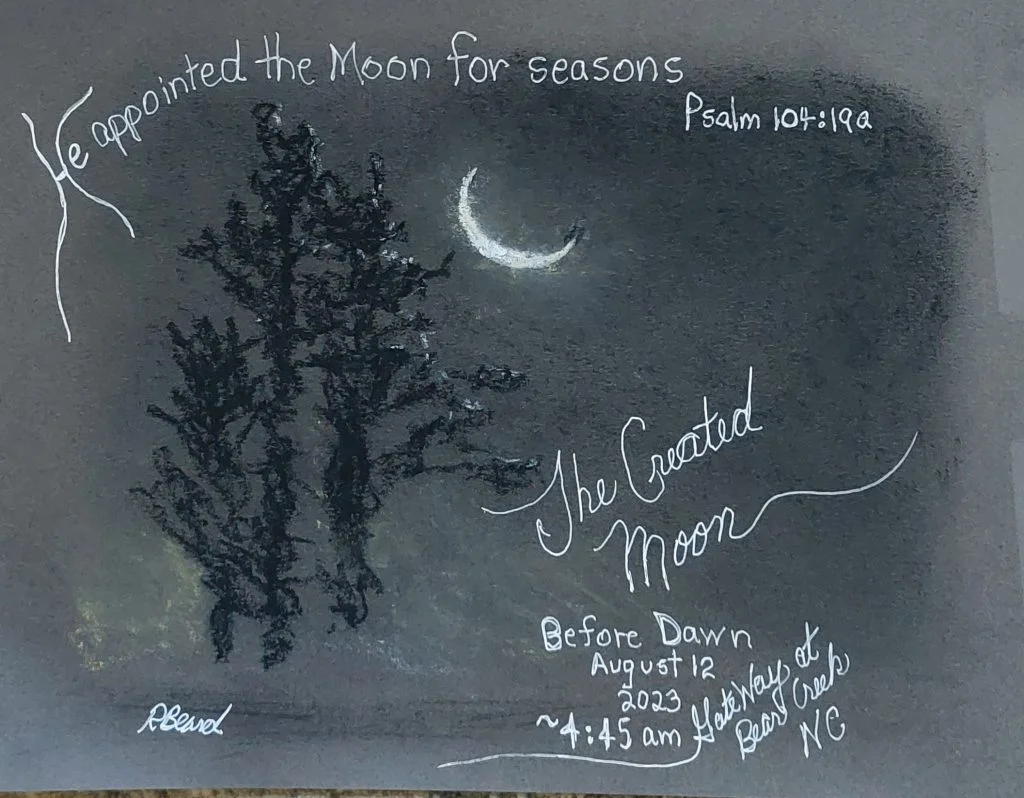 He appointed the Moon for seasons
Psalm 104:19a
The Created
Moon
Before Dawn
August 12
2023
~4:45 am
GateWay at
Bear Creek
NC
RBeard